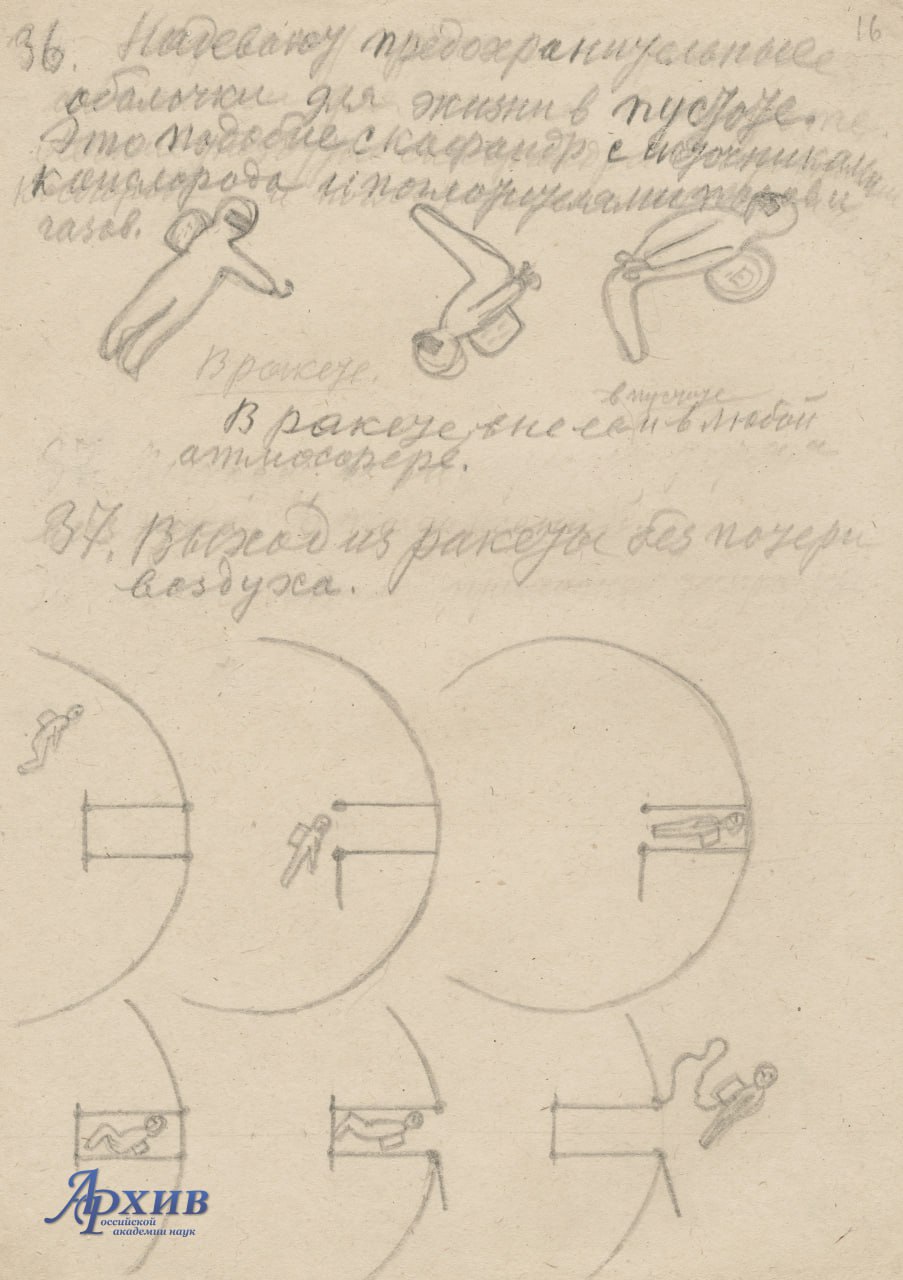 16
36. Надевают предохранительные
оболочки для жизни в пустоте.
Это подобие скафандр с источниками
кислорода и поглотителями паров и
газов.
В ракете.
в пустоте
В ракете, вне ее и в любой
атмосфере.
37. Выход из ракеты без потери
воздуха.
Архив
российской
академии наук